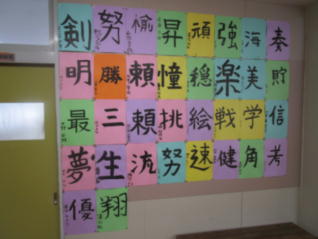 剣 努 愉 昇 頑 強 海 奏
明 勝 頼 憧 穏 楽 美 貯
最 三 頼 挑 絵 戦 学 信
夢 生 流 努 速 健 角 考
優 翔